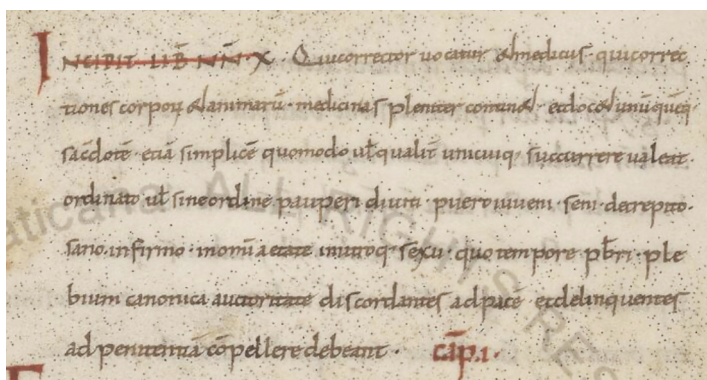 INCIPIT LIB̄ NŇ X. Qui corrector uocatur & medicus. qui correc
tiones corporū & animarū. medicinas pleniter contin&. et doc& unūquēq;
sac̄dotē. etiā simplicē quomodo ut̄ qualit̄ unicuiq; succurrere ualeat.
ordinato ut̄ sine ordine. pauperi. diuiti. puero. iuueni. seni. decrepito.
sano. infirmo. in omni aetate. in utroq; sexu. quo tempore p̄bri. ple
bium canonica auctoritate discordantes ad pacē. et delinquentes
ad penitentiā cōpellere debeant. cāp. i.
aticana ALL RIGHTS RES